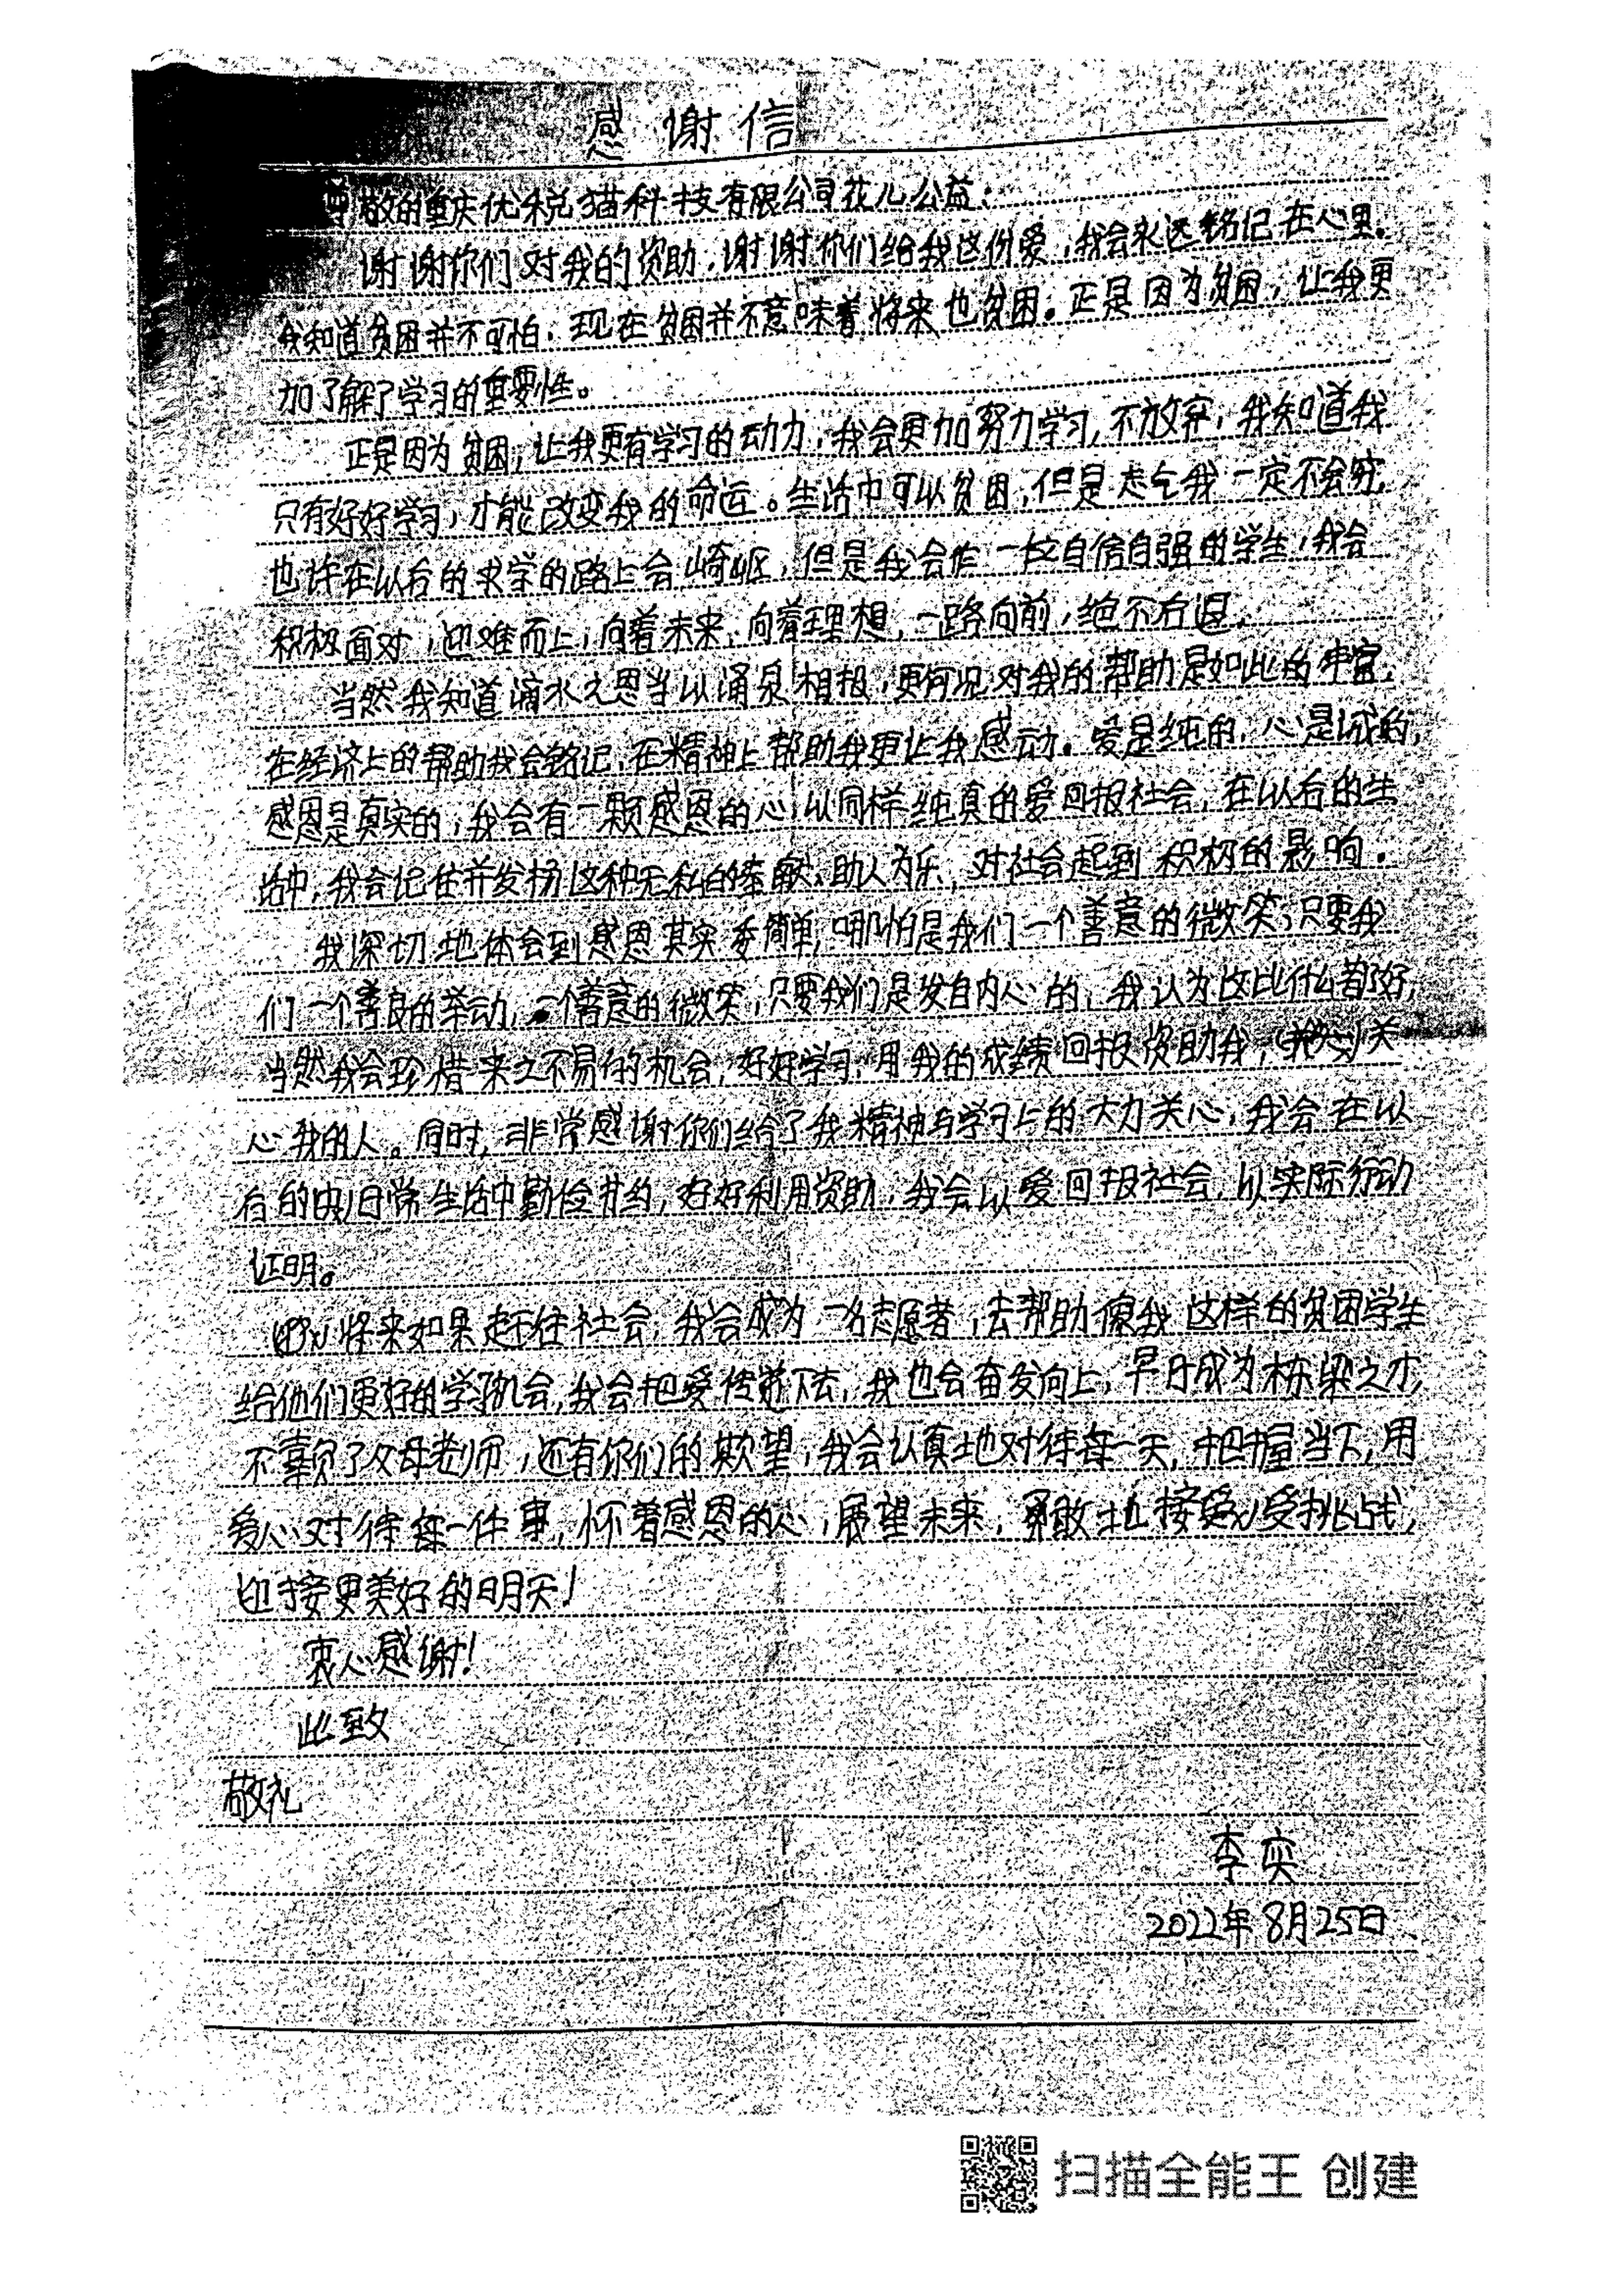 感谢信
尊敬的重庆优税猫科技有限公司花儿公益:
谢谢你们对我的资助,谢谢你们给我这份爱,我会永远铭记在心里.
我知道贫困并不可怕.现在贫困并不意味着将来也贫困。正是因为贫困,让我更
加了解了学习的重要性。
正是因为贫困,让我更有学习的动力,我会更加努力学习,不放弃,我知道我
只有好好学习,才能改变我的命运。生活中可以贫困,但是志气我一定不会穷,
也许在以后的求学的路上会崎岖,但是我会作一位自信自强的学生,我会
积极面对,迎难而上,向着未来,向着理想,一路向前,绝不后退.
当然我知道滴水之恩当以涌泉相报,更何况对我的帮助是如此的丰富,
在经济上的帮助我会铭记,在精神上帮助我更让我感动.爱是纯的,心是诚的,
感恩是真实的,我会有一颗感恩的心,以同样纯真的爱回报社会,在以后的生
活中,我会记住并发扬这种无私的奉献,助人为乐,对社会起到积极的影响.
我深切地体会到感恩其实委简单,哪怕是我们一个善意的微笑,只要我
们一个善良的举动,一个善意的微笑,只要我们是发自内心的,我认为这比什么都好,
当然我会珍惜来之不易的机会,好好学习,用我的成绩回报资助我,关
心我的人。同时,非常感谢你们给了我精神与学习上的大力关心,我会在以
后的日常生活中勤俭节约,好好利用资助,我会以爱回报社会,以实际行动
证明。
将来如果走往社会,我会成为一名志愿者,去帮助像我这样的贫困学生
给他们更好的学习机会,我会把爱传递下去,我也会奋发向上,早日成为栋梁之才,
不辜负了父母老师,还有你们的期望,我会认真地对待每一天,把握当下,用
爱心对待每一件事,怀着感恩的心,展望未来,勇敢地接受挑战,
迎接更美好的明天!
衷心感谢!
此致
敬礼
李奕
2022年8月25日
扫描全能王 创建